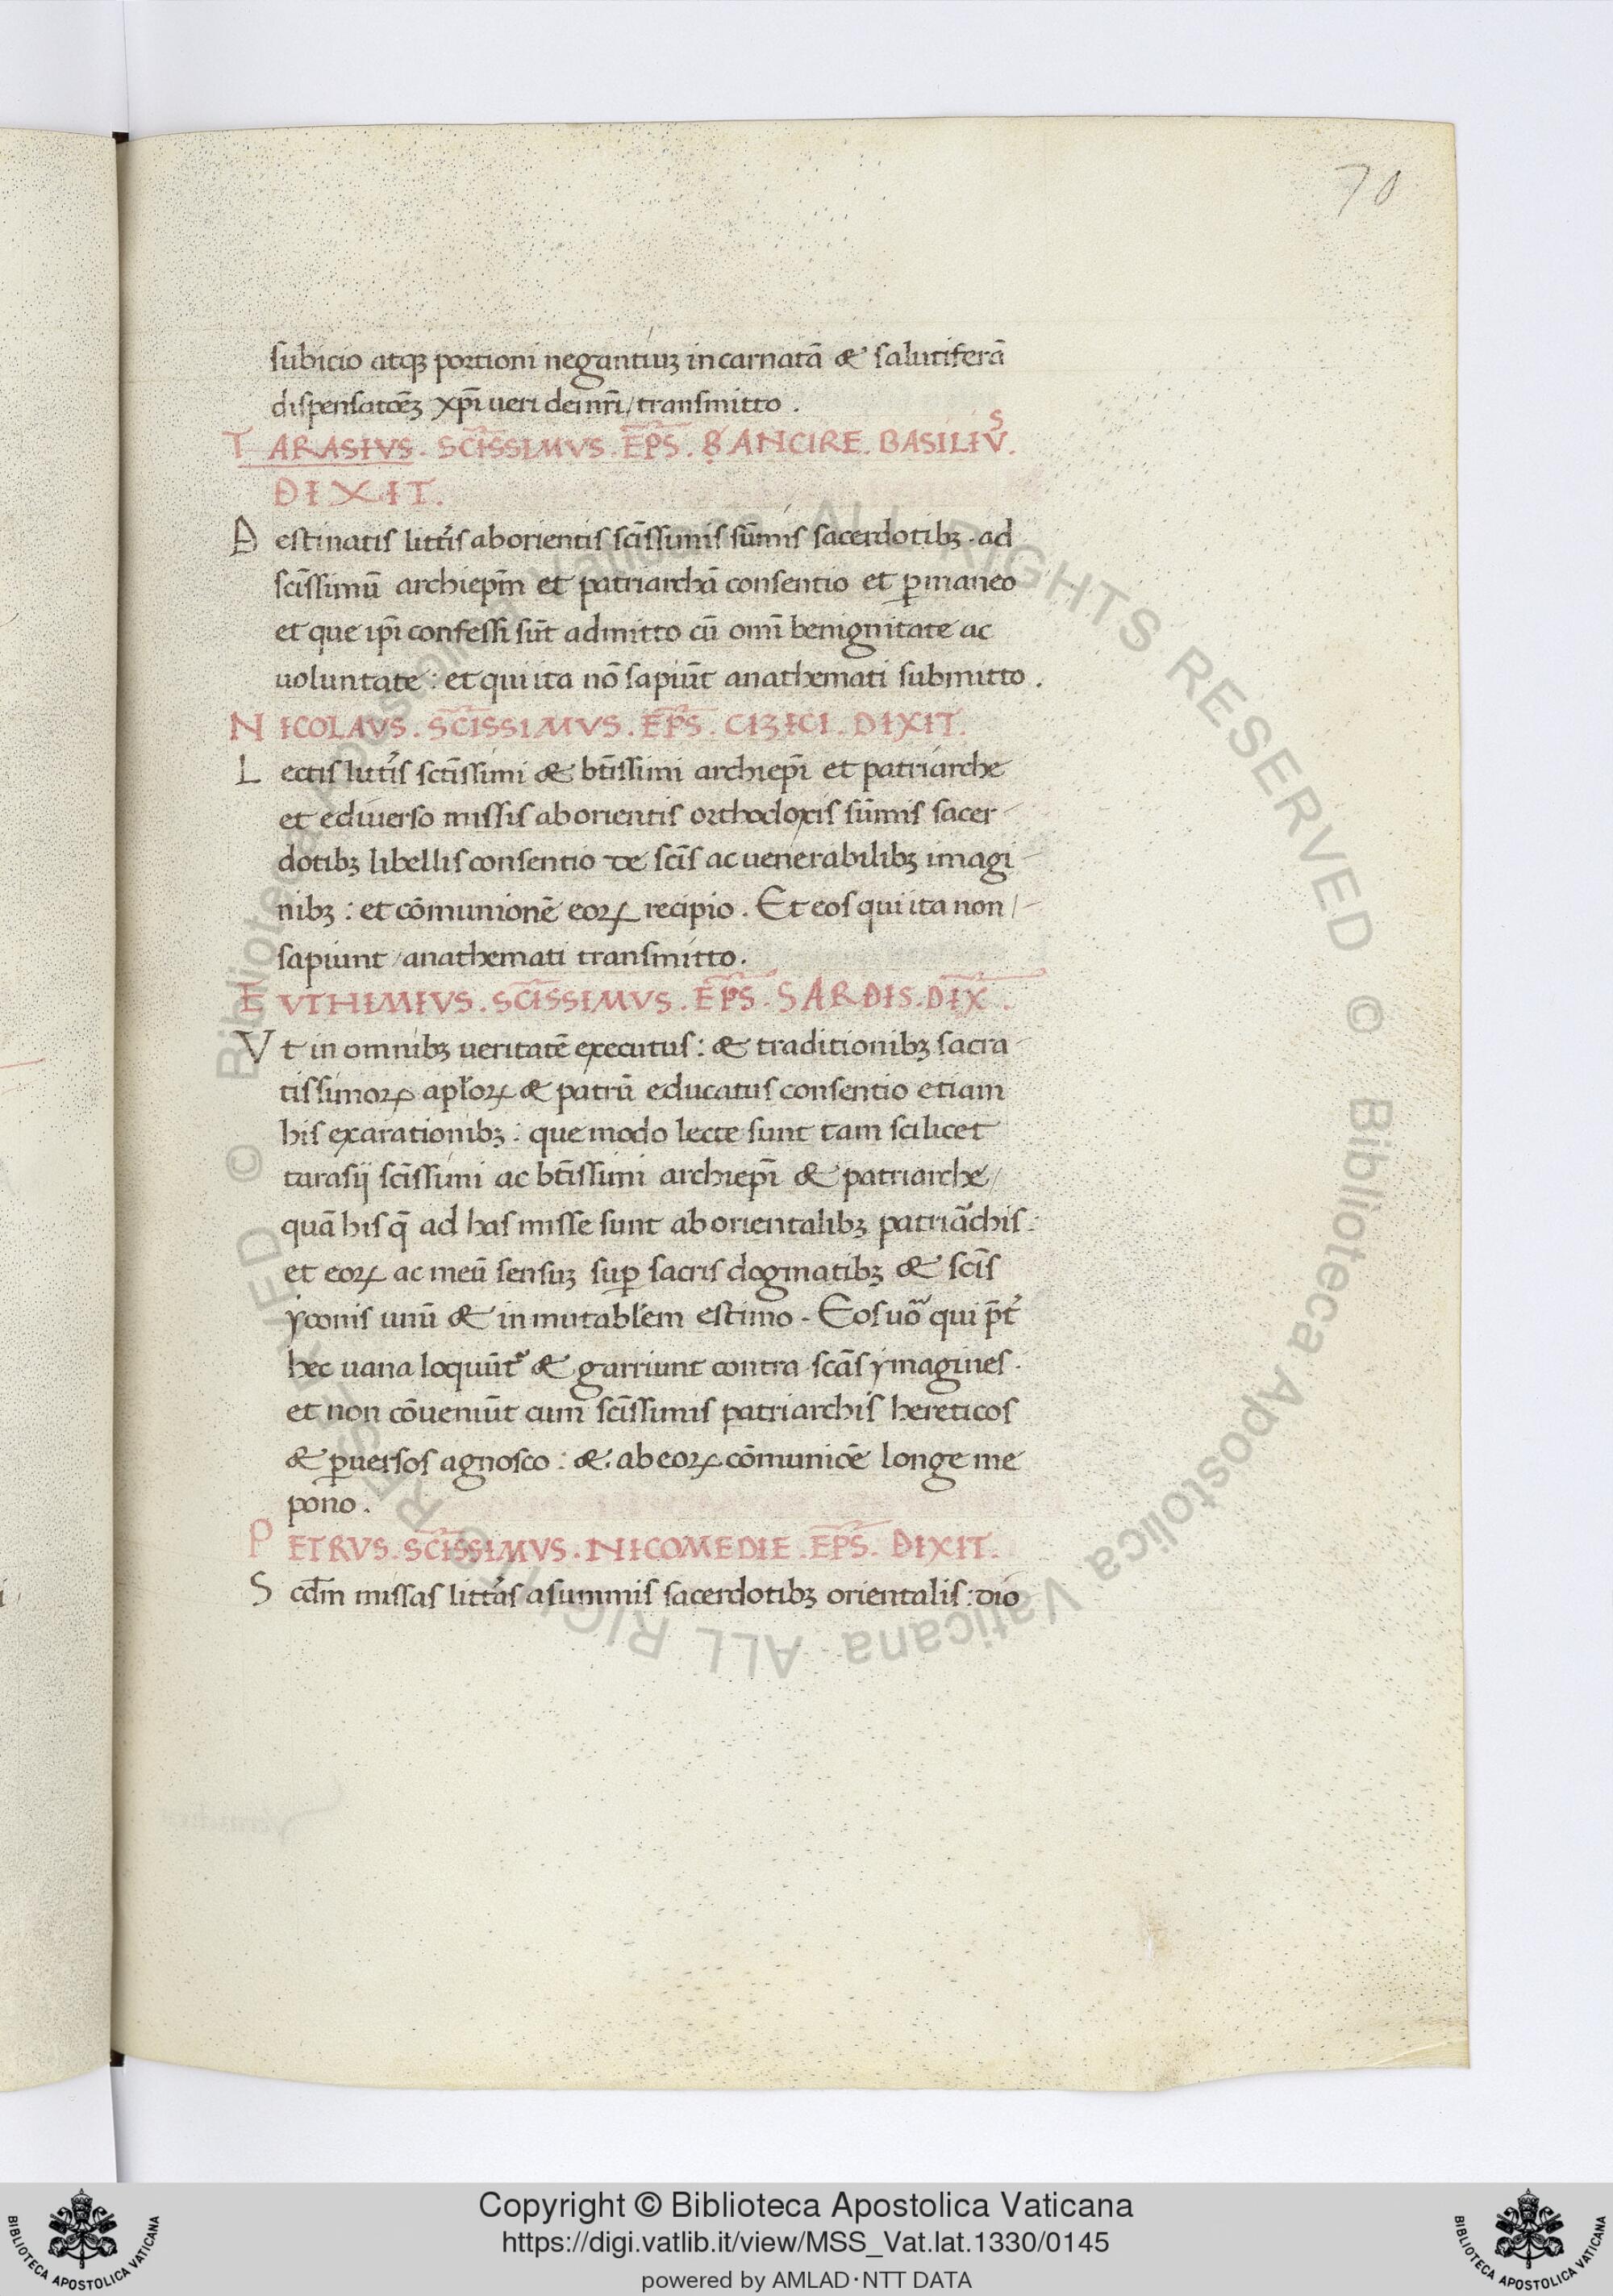 70
subicio atqȝ portioni negantiuȝ incarnatā & salutiferā
dispensatōeȝ xp̄i ueri dei nr̄i / transmitto .
TARASIVS . SC̄ISSIMVS . EP̄S . ANCIRE . BASILIVS .
DIXIT .
Destinatis litt̄is ab orientis sc̄issimis sūmis sacerdotibȝ . ad
sc̄issimū archiep̄m et patriarchā consentio et ꝑmaneo
et que ip̄i confessi sūt admitto cū om̄i benignitate ac
uoluntate : et qui ita nō sapiūt anathemati submitto .
NICOLAVS . SC̄ISSIMVS . EP̄S . CIZICI . DIXIT .
Lectis litt̄is sct̄issimi & bt̄issimi archiep̄i et patriarche
et ediuerso missis ab orientis orthodoxis sūmis sacer
dotibȝ libellis consentio de sc̄is ac uenerabilibȝ imagi
nibȝ : et cōmunionē eoꝝ recipio . Et eos qui ita non /
sapiunt / anathemati transmitto .
EVTHIMIVS . SC̄ISSIMVS . EP̄S . SARDIS . DIX̄ .
Vt in omnibȝ ueritatē executus : & traditionibȝ sacra
tissimoꝝ apl̄oꝝ & patrū educatus consentio etiam
his exarationibȝ : que modo lecte sunt tam scilicet
tarasij sc̄issimi ac bt̄issimi archiep̄i & patriarche /
quā his q̄ ad has misse sunt ab orientalibȝ patriāchis :
et eoꝝ ac meū sensuȝ suꝑ sacris dogmatibȝ & sc̄is
yconis unū & inmutabl̄em estimo . Eos uō qui p̄t
hec uana loquūt̄ & garriunt contra sc̄as ymagines .
et non cōueniūt cum sc̄issimis patriarchis hereticos
& ꝑuersos agnosco : & ab eoꝝ cōmunicē longe me
pono .
PETRVS . SC̄ISSIMVS . NICOMEDIE . EP̄S . DIXIT .
Scd̄m missas litt̄as a summis sacerdotibȝ orientalis : dio
© Biblioteca Apostolica Vaticana ALL RIGHTS RESERVED © Biblioteca Apostolica Vaticana ALL RIGHTS RESERVED
Copyright © Biblioteca Apostolica Vaticana
https://digi.vatlib.it/view/MSS_Vat.lat.1330/0145
powered by AMLAD·NTT DATA
BIBLIOTECA APOSTOLICA VATICANA
BIBLIOTECA APOSTOLICA VATICANA